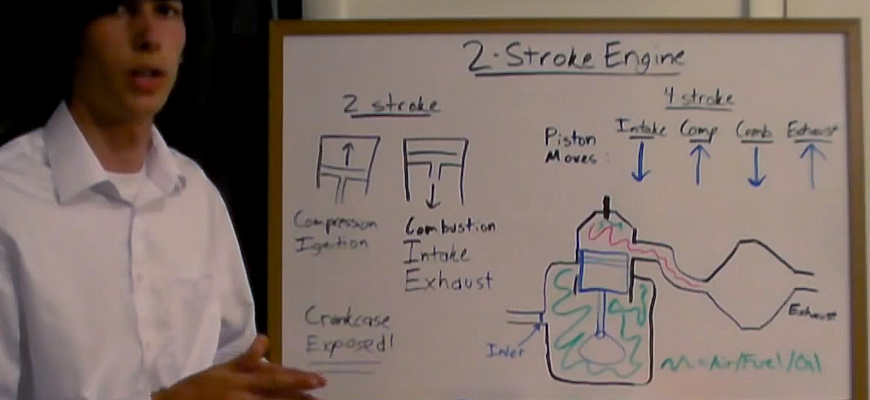 2-Stroke Engine
2 stroke
4 stroke
Piston
Moves:
Intake Comp Comb Exhaust
Compression
Ignition
Combustion
Intake
Exhaust
Crankcase
Exposed!
Inlet
Exhaust
= Air/Fuel/Oil